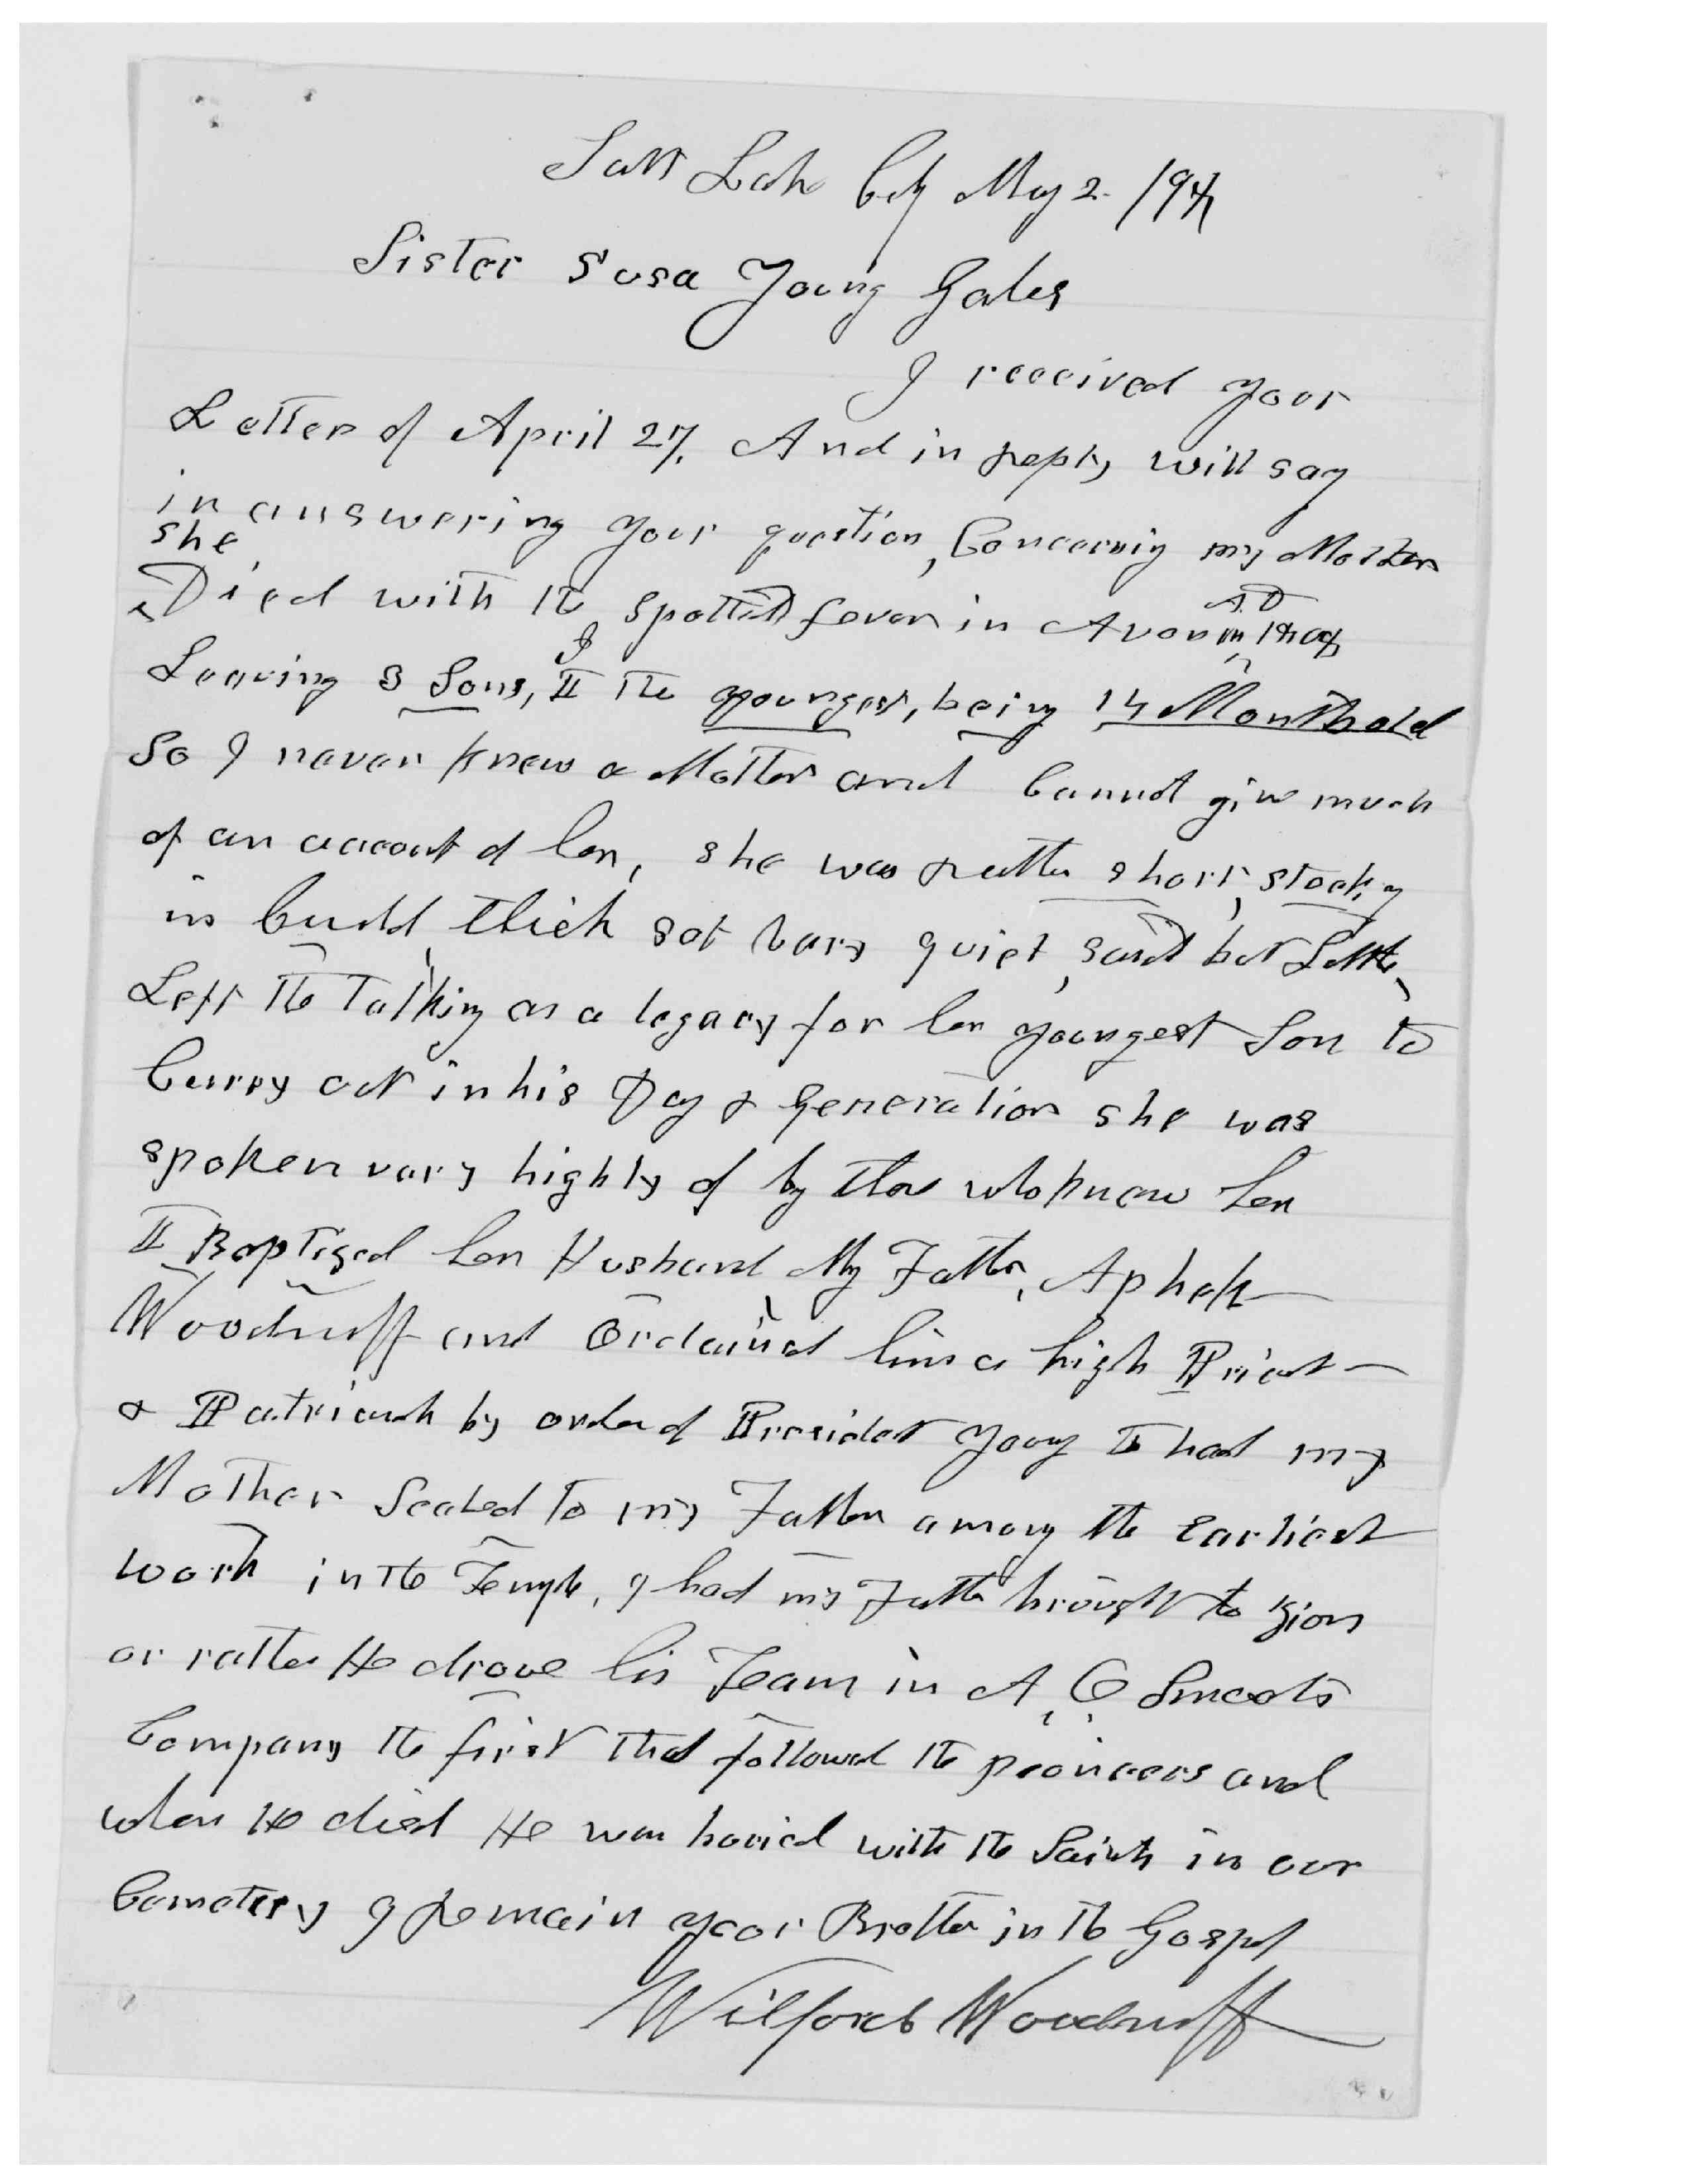 Salt Lake City May 2. /94
Sister Susa Young Gates
I received your
Letter of April 27, And in reply will say
in answering your question, Concerning my Mother
she
Died with the spotted fever in Avon in
AD
Leaving 3 Sons, I the youngest, being 14 Months old
So I never knew a Mother and Cannot give much
of an account of her, she was rather short, stocky
in build, thick set very quiet, said but Little,
Left the Talking as a legacy for her youngest Son to
Carry out in his Day & Generation she was
spoken very highly of by those who knew her
I Baptized her Husband My Father, Aphek
Woodruff and Ordained him a high Priest
& Patriarch by order of President Young & had my
Mother Sealed to my Father among the Earliest
work in the Temple, I had my Father brought to Zion
or rather He drove his Team in A, O, Smoots
Company the first that followed the pioneers and
when He died He was buried with the Saints in our
Cemetery I remain your Brother in the Gospel
Wilford Woodruff